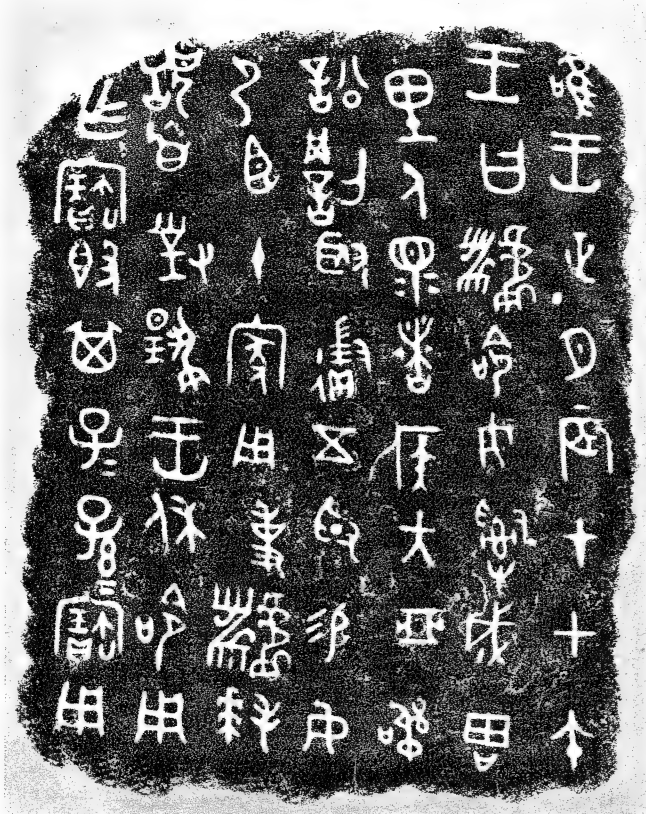 唯王正月辰才甲午
王曰䜌令女𤔲成周
里人眔者侯大亞訊
訟罰取徵五寽易女
尸臣十家用事䜌拜
𩒨首對揚王休令用
乍寶簋其子=孫=寶用